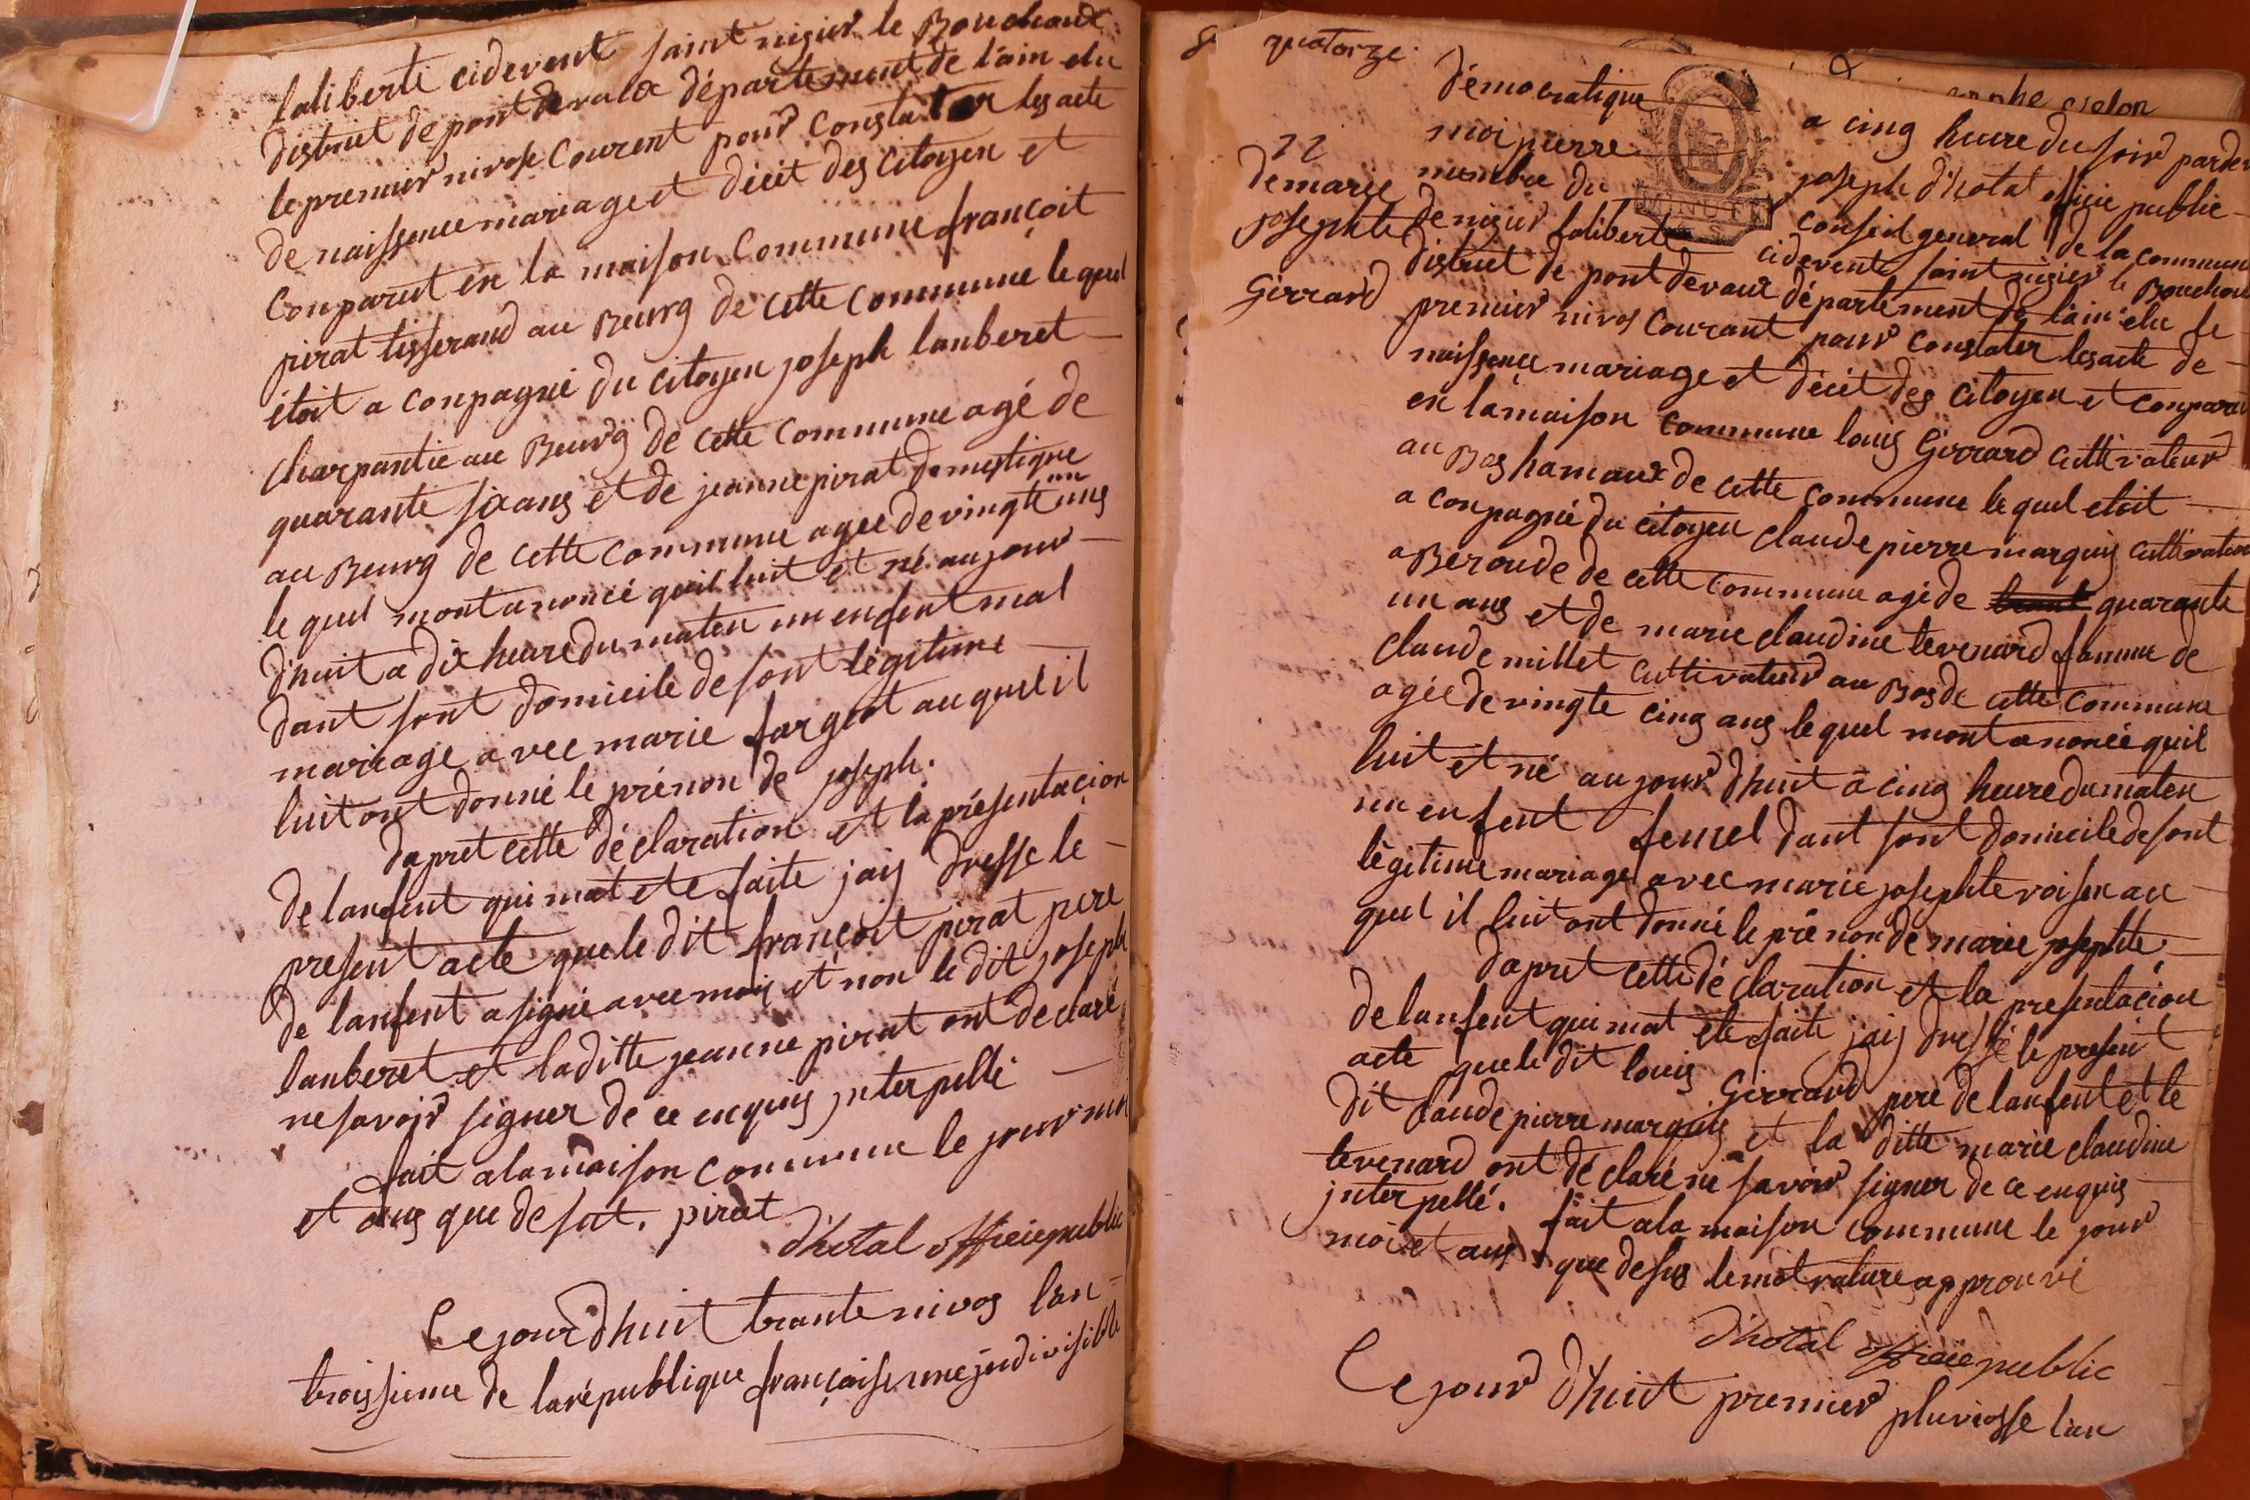 laliberté cidevent saint nizier le Bouchoux
district de pont devaux département de l'ain elu
le premier nivose courent pour constater les acte
de naissence mariage et décét des citoyen et
conparut en la maison commune françoit
pirat tisserand au Beurg de cette commune le quel
étoit a conpagné du citoyen joseph lanberet
charpantie au Beurg de cette commune agé de
quarante six ans et de jeanne pirat domestique
au Beurg de cette commune agee de vingte un ans
le quel mont anoncé quil luit et né aujour
d'huit a dix heure du maten un enfent mal
dant sont domicile de sont légitime
mariage avec marie fargeot au quel il
luit ont donné le prénon de joseph.
dapret cette déclaration et la présentacion
de lanfent qui mat ete faite jaij dresse le
present acte que le dit françoit pirat pere
de lanfent a signé avec moij et non le dit joseph
lanberet et laditte jeanne pirat ont declaré
ne savoir signer de ce enquis jnterpellé
fait a la maison commune le jour mn
et ans que de sut. pirat
d'hotal officie public
Ce jour d'huit trante nivos l'an
troissieme de la république françaises une jndivisible
8 quatorze
démocratique a cinq heure du soir parde
moi pierre joseph d'hotal officie public
membre du conseil general de la commun
de nizier laliberté cidevent saint nizier le Bouchou
district de pont devaux département de l'ain elu le
premier nivos courant pour constater les acte de
naissence mariage et décét des citoyen et conparu
en la maison commune louis Girrard cultivateur
au Bas hamaux de cette commune le quel etoit
a conpagné du citoyen claude pierre marquis cultivateur
a Beroude de cette commune agé de quarante
un ans et de marie claudine tevenard famme de
claude millet cultivateur au Bas de cette commune
agée de vingte cinq ans le quel mont anoncée quil
luit et né au jour d'huit a cinq heure du maten
un enfent femel dant sont domicile de sont
légitime mariage avec marie josephte voisin au
quel il luit ont donné le prénon de marie josephte
dapret cette déclaration et la presentacion
de lanfent qui mat été faite jaij dressé le present
acte que le dit louis Girrard pere de lanfent et le
dit claude pierre marquis et la ditte marie claudine
tevenard ont déclaré ne savoir signer de ce enquis
jnterpellé. fait a la maison commune le jour
moi et ans que desus le mot rature approuvé
d'hotal officie public
Ce jour d'huit premier pluviosse l'an
22
de marie
josephte
Girrard
MINUTE